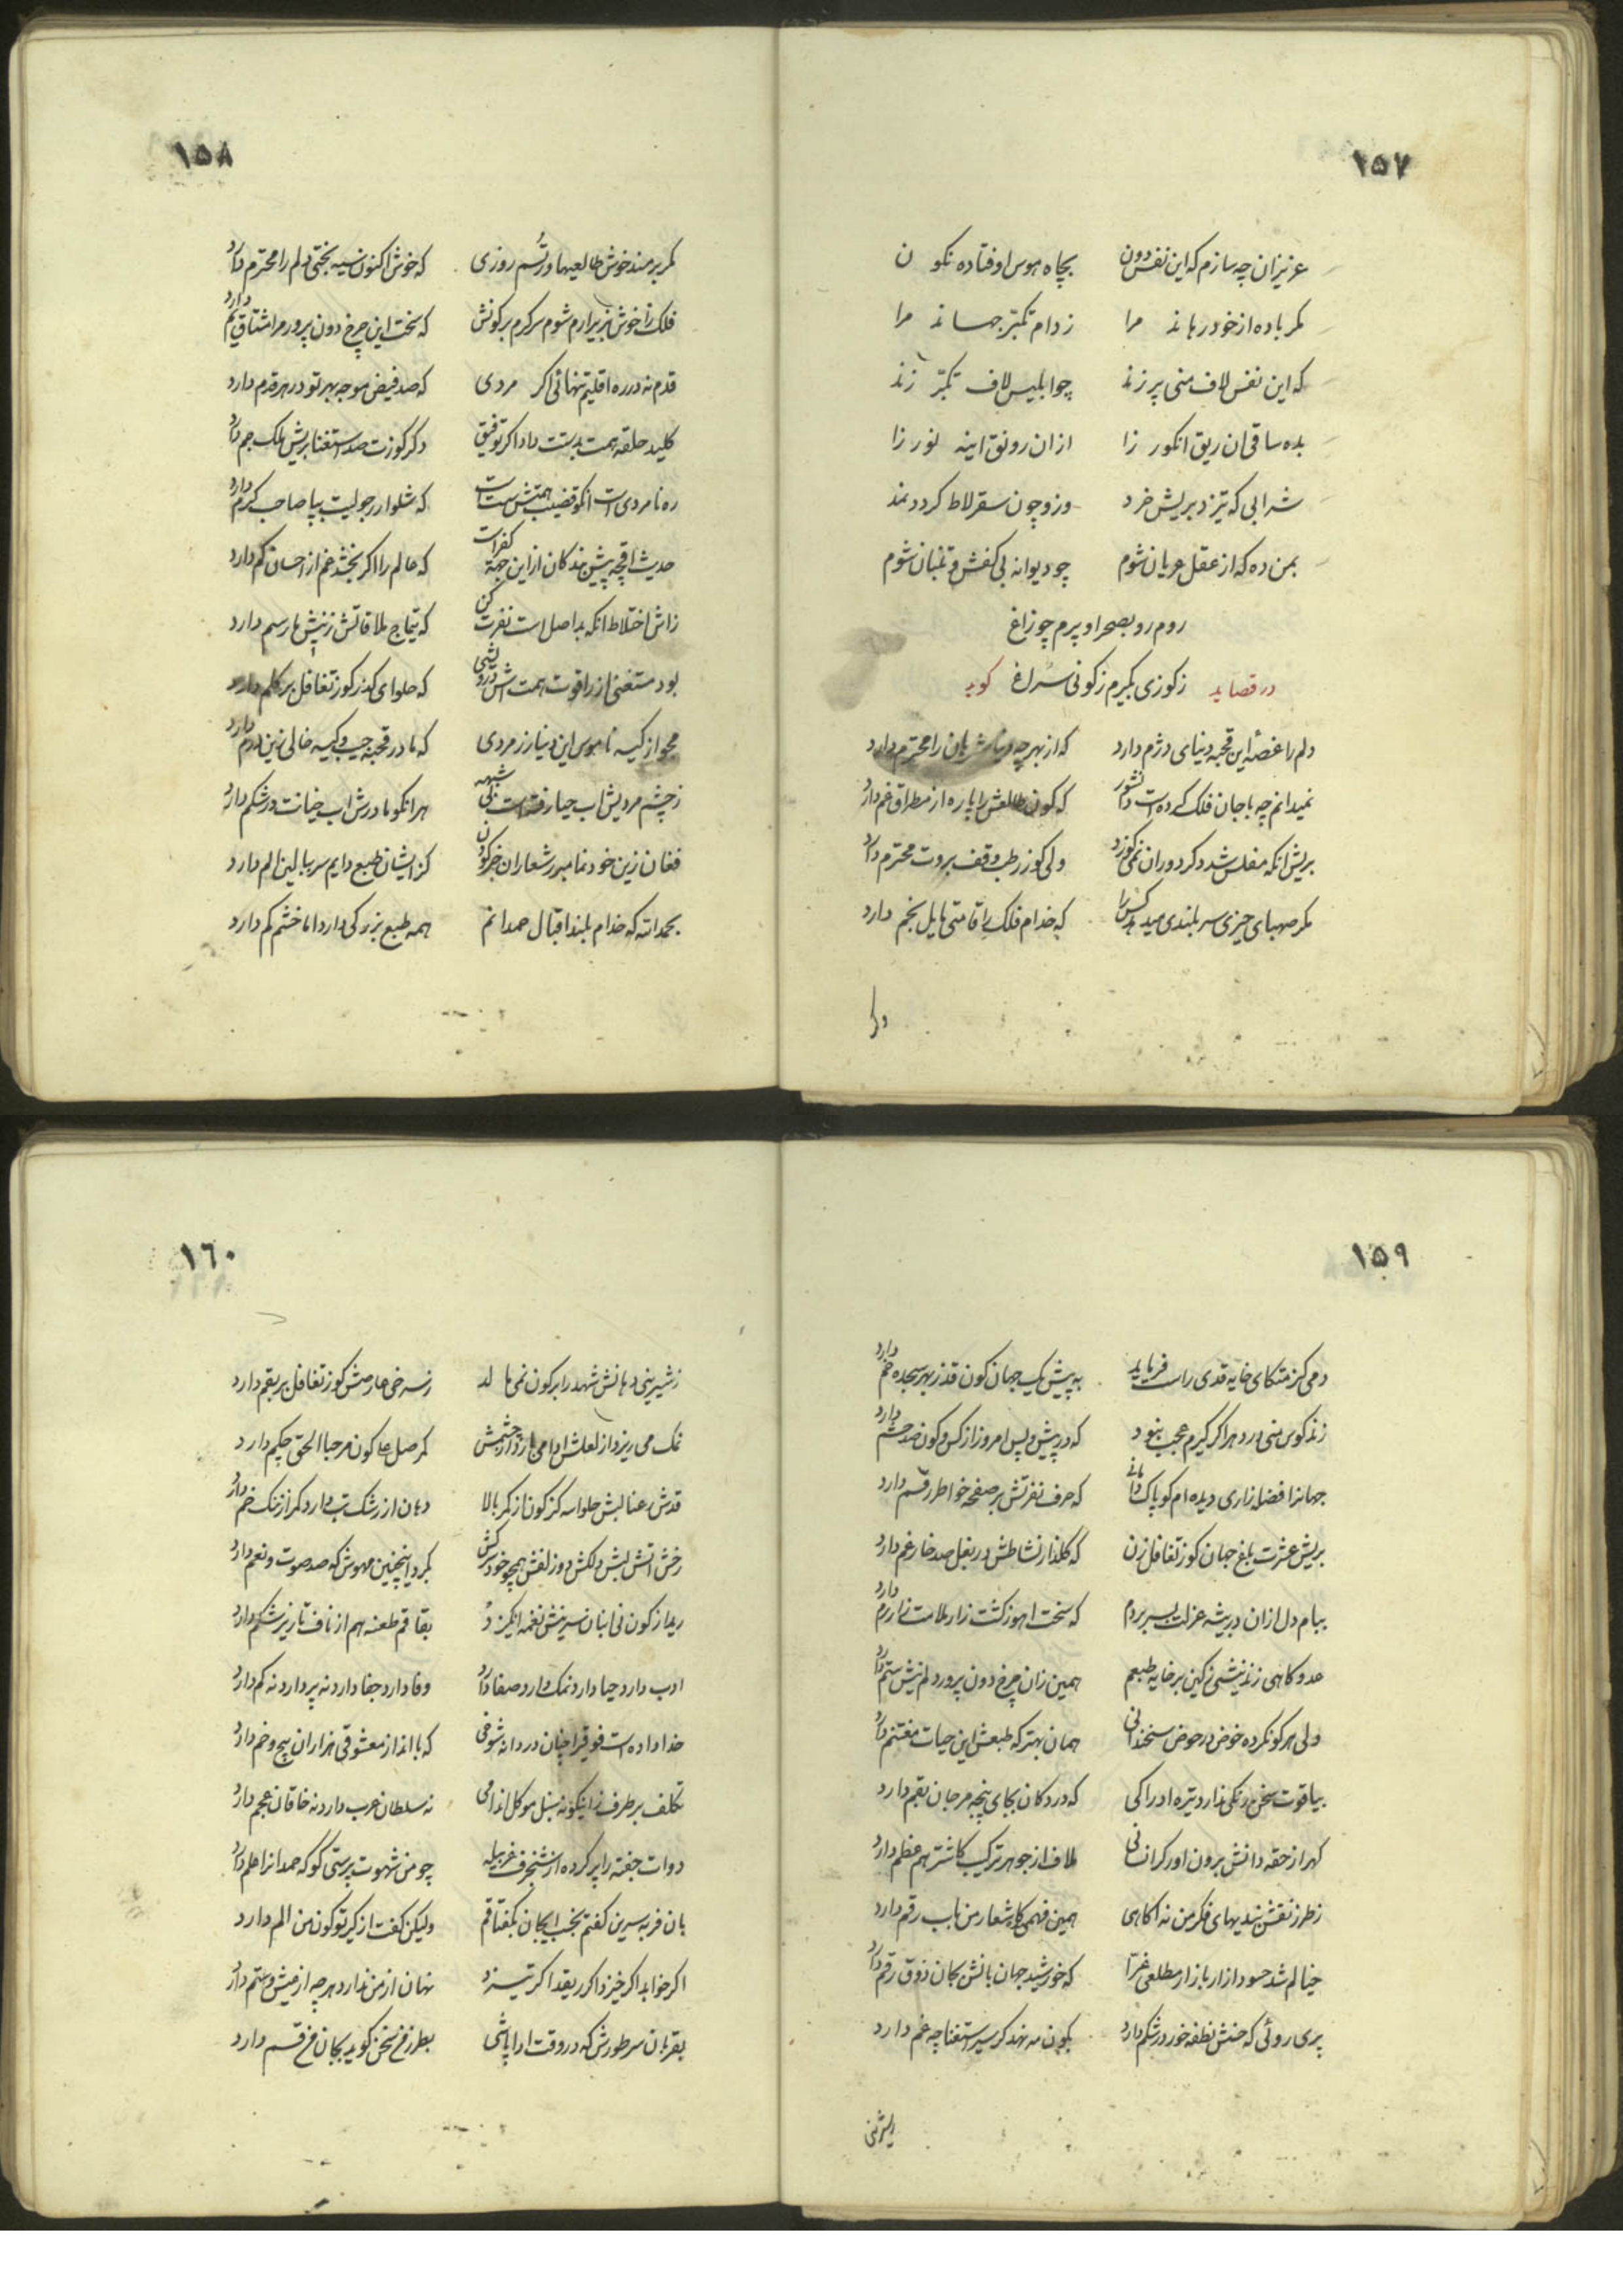 ۱۵۷
عزیزان چه سازم که این نفس دون بچاه هوس اوفتاده نکون
مکر باده از خود رهاند مرا ز دام تکبر جهاند مرا
که این نفس لاف منی پر زند چو ابلیس لاف تکبر زند
بده ساقی ان ریق انکور زا ازان رونق اینه نور زا
شرابی که تیزد بریش خرد وزو چون سقرلاط کردد نمد
بمن ده که از عقل عریان شوم چو دیوانه بی کفش و تنبان شوم
روم رو بصحرا و پرم چو زاغ
در قصاید ز کوزی بکیرم ز کونی سراغ کوید
دلم را غصهٔ این قحبه دنیای دژم دارد که از بهر چه را محترم دارد
نمیدانم چه با جان فلک که کون طالعش را پاره از مطراق غم دارد
بریش انکه مفلس شد دکر دوران نمی کوزد ولی کوز رطب وقف بروت محترم دارد
مکر صهبای حیزی سر بلندی میدهد کس را که خدام فلک را قامتی مایل بخم دارد
دکر
۱۵۸
مکر برمند خوش طالعیها ورتسم روزی که خوش اکنون سیه بختی دلم را محترم دارد
فلک را خوش بزیر ارم شوم سرکرم برکونش که سخت این چرخ دون پرور مرا مشتاق نم دارد
قدم نه در ره اقلیم تنهائی اکر مردی که صد فیض موجه بهر تو در هر قدم دارد
کلید حلقه همت بدستت داد اکر توفیق دکر کوزت صد استغنا بریش ملک جم دارد
ره نامردی است انکو قضیب همتش سست است که شلوار رجولیت بپا صاحب کرم دارد
حدیث اقچه پیش بندکان از این جهة کفر است که عالم را اکر بخشد غم از احسان کم دارد
ز اش اختلاط انکه بد اصل است نفرت کن که تیتاج ملاقاتش ز نیش مار سم دارد
بود مستغنی از زر اقوت همت اش درویشی که حلوای کوز تغافل بر دارد
مجو از کیسه ناموس این دینار زر مردی که مادر قحبه جیب و کیسه خالی زین درم دارد
ز چشم مردیش اب حیا رفته است بی شبهه هر انکو مادرش اب خیانت در شکم دارد
فغان زین خود نما مبرز شعاران خر کون کز ایشان طبع دایم سر ببالین الم دارد
بحمدالله که خدام بلند اقبال حمدانم همه طبع بزرکی دارد اما خشم کم دارد
۱۵۹
دمی کز متکای خایه قدی راست فرماید به پیشش یک جهان کون قد ز بهر سجده خم دارد
زند کوس منی در دهر اکر کیرم عجب نبود که در پیش و پس امروز از کس و کون صد حشم دارد
جهانرا فضله زاری دیده ام کو پاک دامانی که حرف نفرتش بر صفحه خواطر رقم دارد
بریش عشرت باغ جهان کوز تغافل زن که کلذار نشاطش در بغل صد خار غم دارد
ببام دل ازان در بیشه عزلت بسر بردم که سخت اهوز کشت زار ملامت زار رم دارد
عدو کاهی زند نیشی ز کین بر خایه طبعم همین زان چرخ دون پرور دلم نیش ستم دارد
ولی هر کو نکرده خوض در حوض سخندانی همان بهتر که طبعش این حیات مغتنم دارد
بیاقوت سخن رنکی ندارد تیره ادراکی که در دکان بجای پنجه مرجان بقم دارد
کهر از حقه دانش برون اور کران ملاف از جوهر ترکیب کاشتر هم عظم دارد
ز طرز نقش بندیهای فکر من نه اکاهی همین فهمی که اشعار من ناب رقم دارد
خیالم شد حسود ازار باز از مطلعی غرا که خورشید جهان بانش بجان ذوق رقم دارد
پری روئی که جنش نطفه خور در شکم دارد بکون مه نهد کر سیر استغنا چه غم دارد
ز شیرینی
۱۶۰
ز شیرینی دهانش شهد را بر کون نمی مالد ز سرخی عارضش کوز تغافل بر بقم دارد
نمک می ریزد از لعلش ادا می بارد از چشمش مکر صلعا کون مرحبا الحق چکم دارد
قدش عنا لبش حلوا سه کز کون از کمر بالا دهان از رشک تب دارد کمر از تنک خم دارد
رخش اتش لبش دلکش دو زلفش همچو خود سرکش بکرد اینچنین مهوش که صد صوت و نغم دارد
ریما از کون نی انبان سرینش نغمه انکیزد بقاقم طعنه هم از ناف تا زیر شکم دارد
ادب دارد حیا دارد نمک دارد صفا دارد وفا دارد جفا دارد نه پر دارد نه کم دارد
خدا داده است فوقی را چنان دردانه شوخی که با انداز معشوقی هزاران پیچ و خم دارد
تکلف بر طرف زاینکونه سنبل مو کل اندامی نه سلطان عرب دارد نه خاقان عجم دارد
دوات جفته را پر کرده از شنجرف غربیله چو من شهوت پرستی کو که حمدانرا علم دارد
بان فربه سرین کفتم بخسب ایجان بکفتا قم ولیکن کفت از کیر تو کون من الم دارد
اکر خوابد اکر خیزد اکر ریقد اکر تیزد نهان از من ندارد هرچه از میش و ستم دارد
بقربان سر طورش که در وقت ادا پاشی بطرز فخ سخن کوید بجان فخ قسم دارد